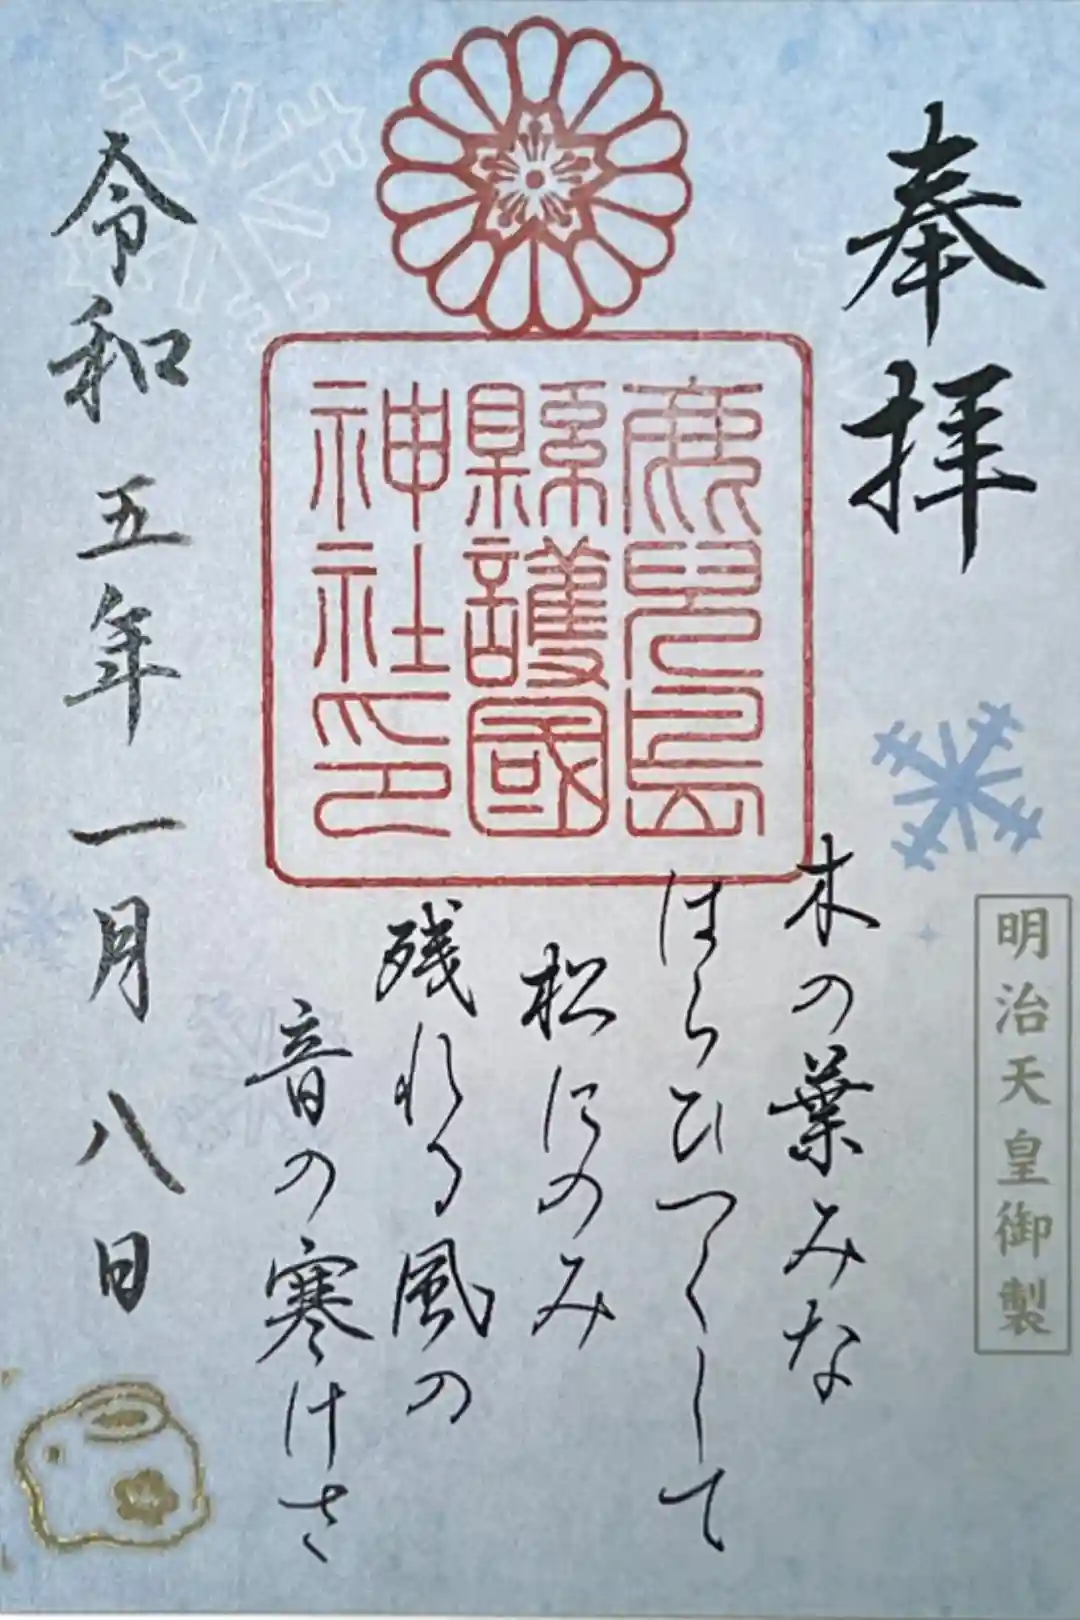 奉拝
明治天皇御製
鹿兒島
縣護國
神社印
木の葉みな
はらひつくして
松にのみ
残れる風の
音の寒けさ
令和五年一月八日